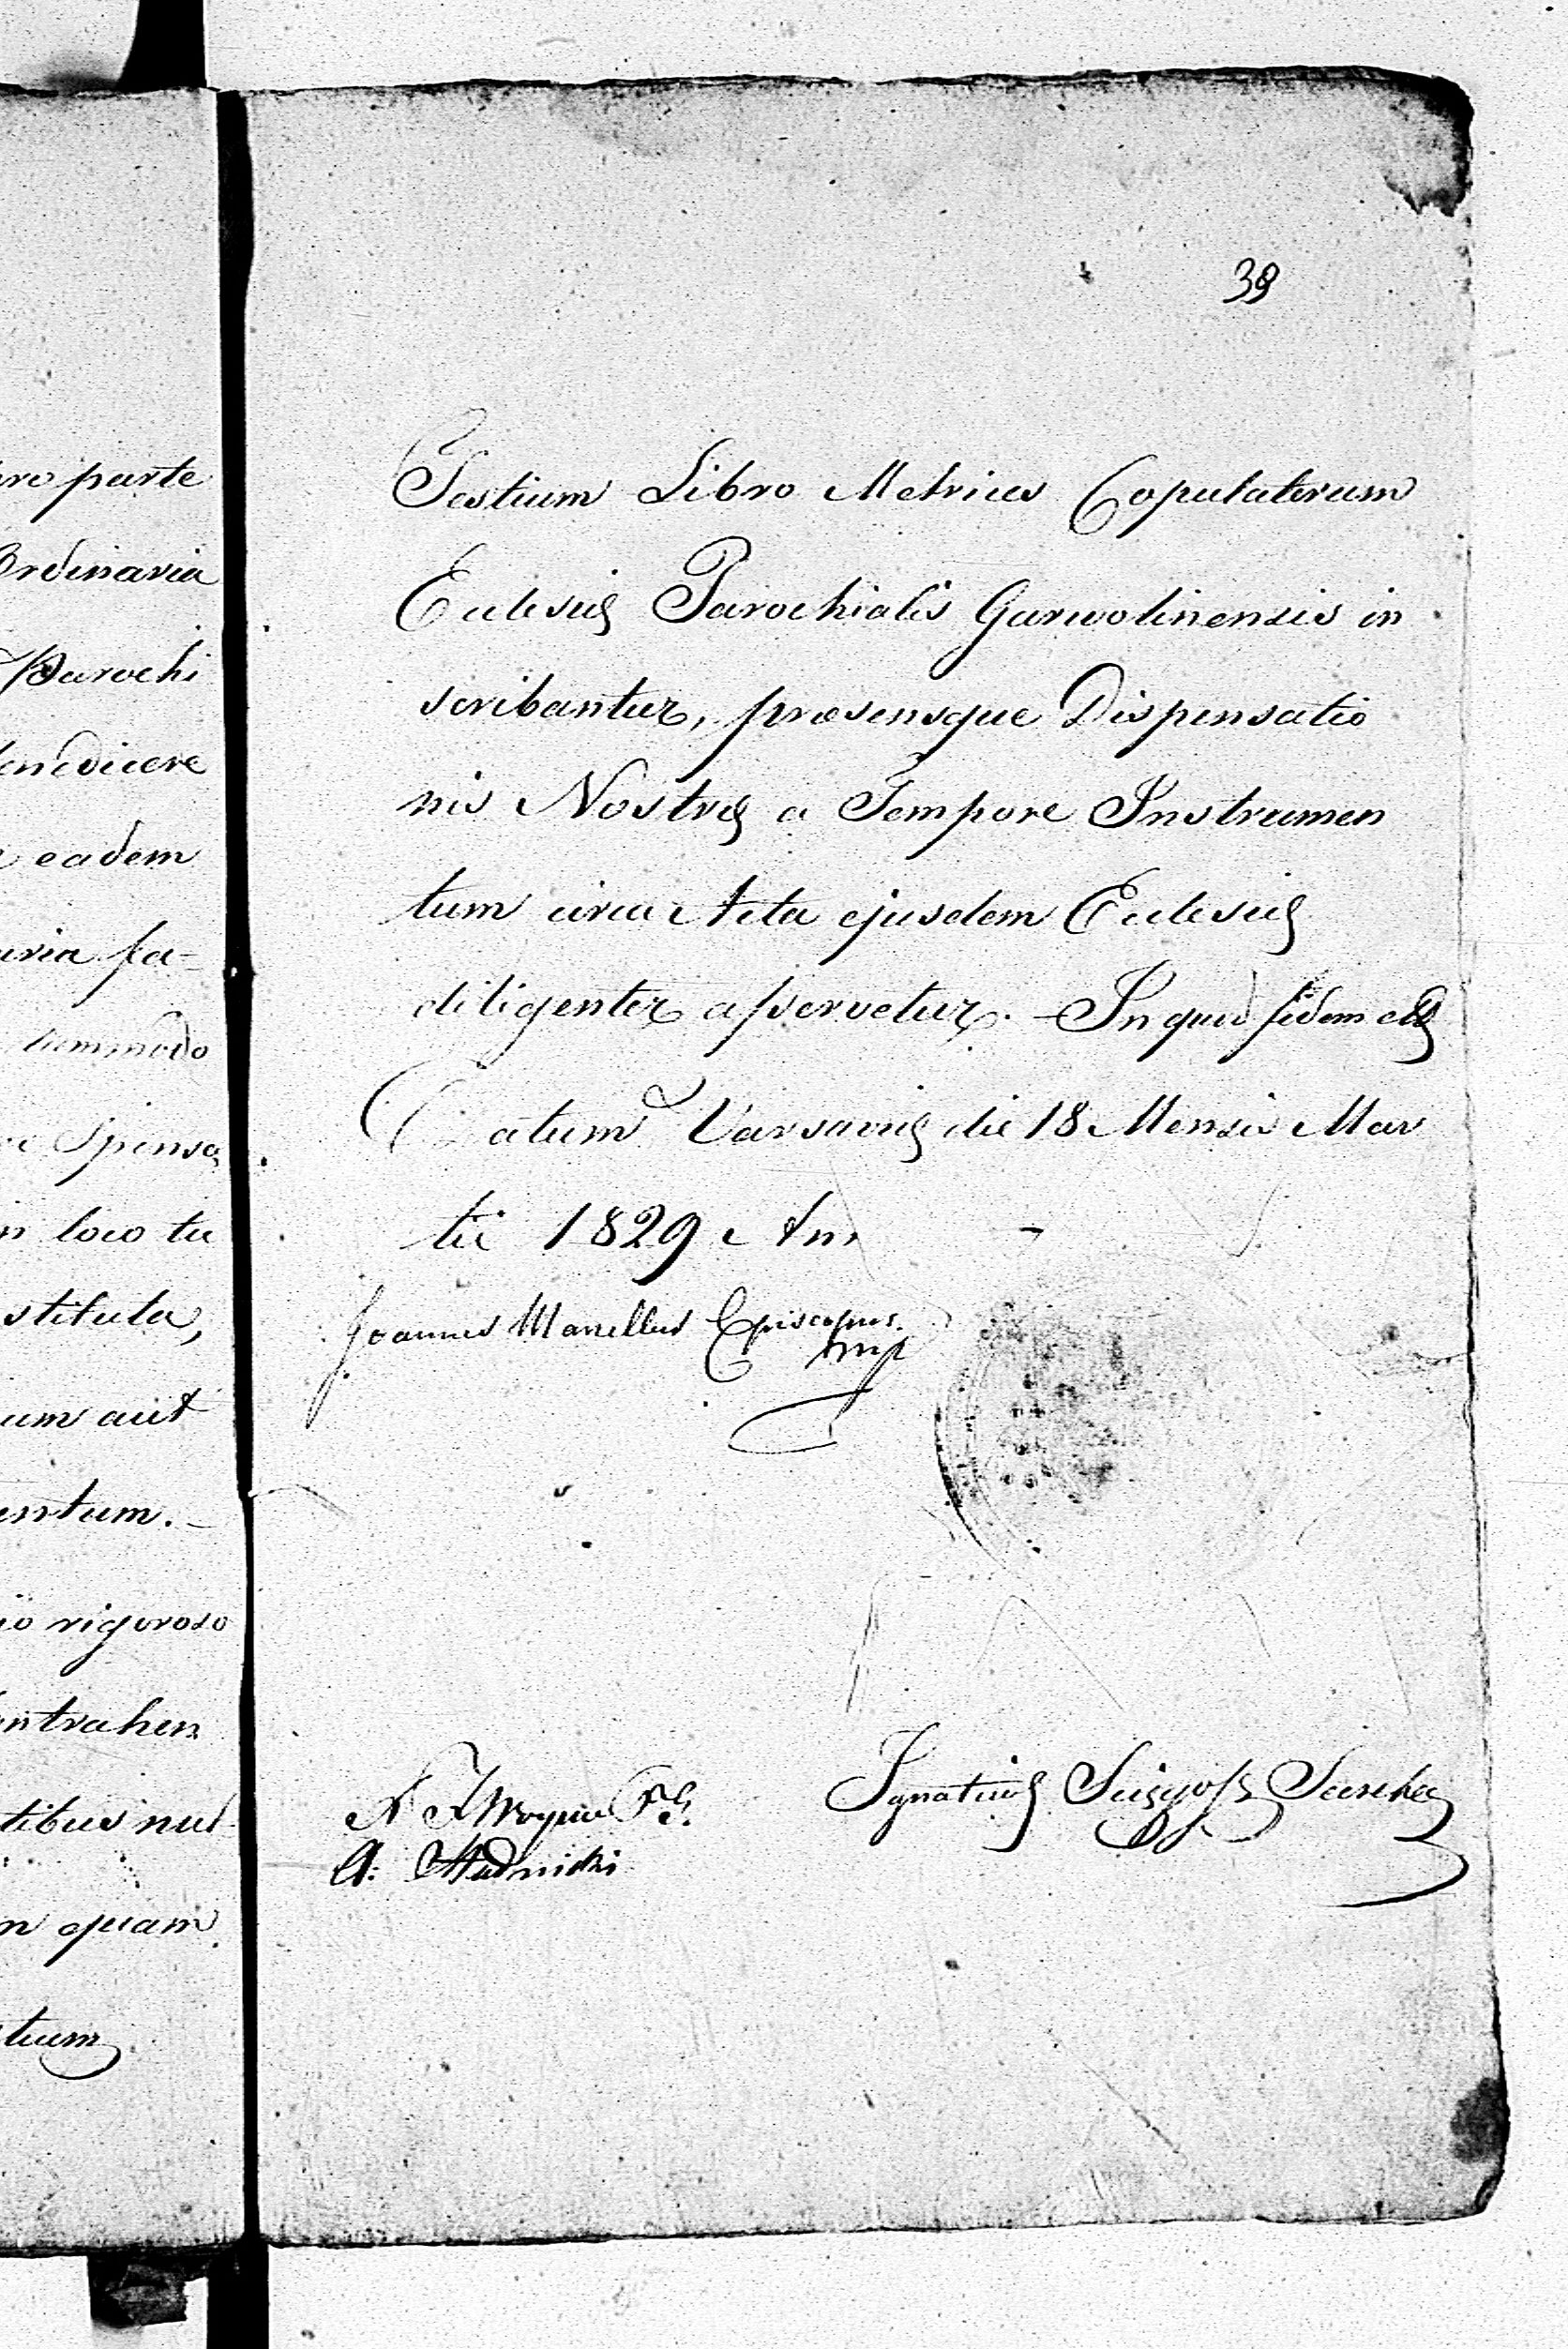 ro parte
Ordinaria
Parochi
enedicere
eadem
aria fa=
tummodo
Sponsę
in loco tu
stituta,
um aut
entum.
io rigoroso
ontrahen
tibus nul
n quam
tium
39
Testium Libro Metrices Copulatorum
Ecclesię Parochialis Garwolinensis in
scribantur, præsensque Dispensatio
nis Nostrę a Tempore Instrumen
tum circa Acta ejusdem Ecclesię
diligenter asservetur. - In quod fidem
Datum Varsavię die 18 Mensis Mar
tii 1829 An.
Joannes Marcellus Episcopus.
mp
Ignatius
A.